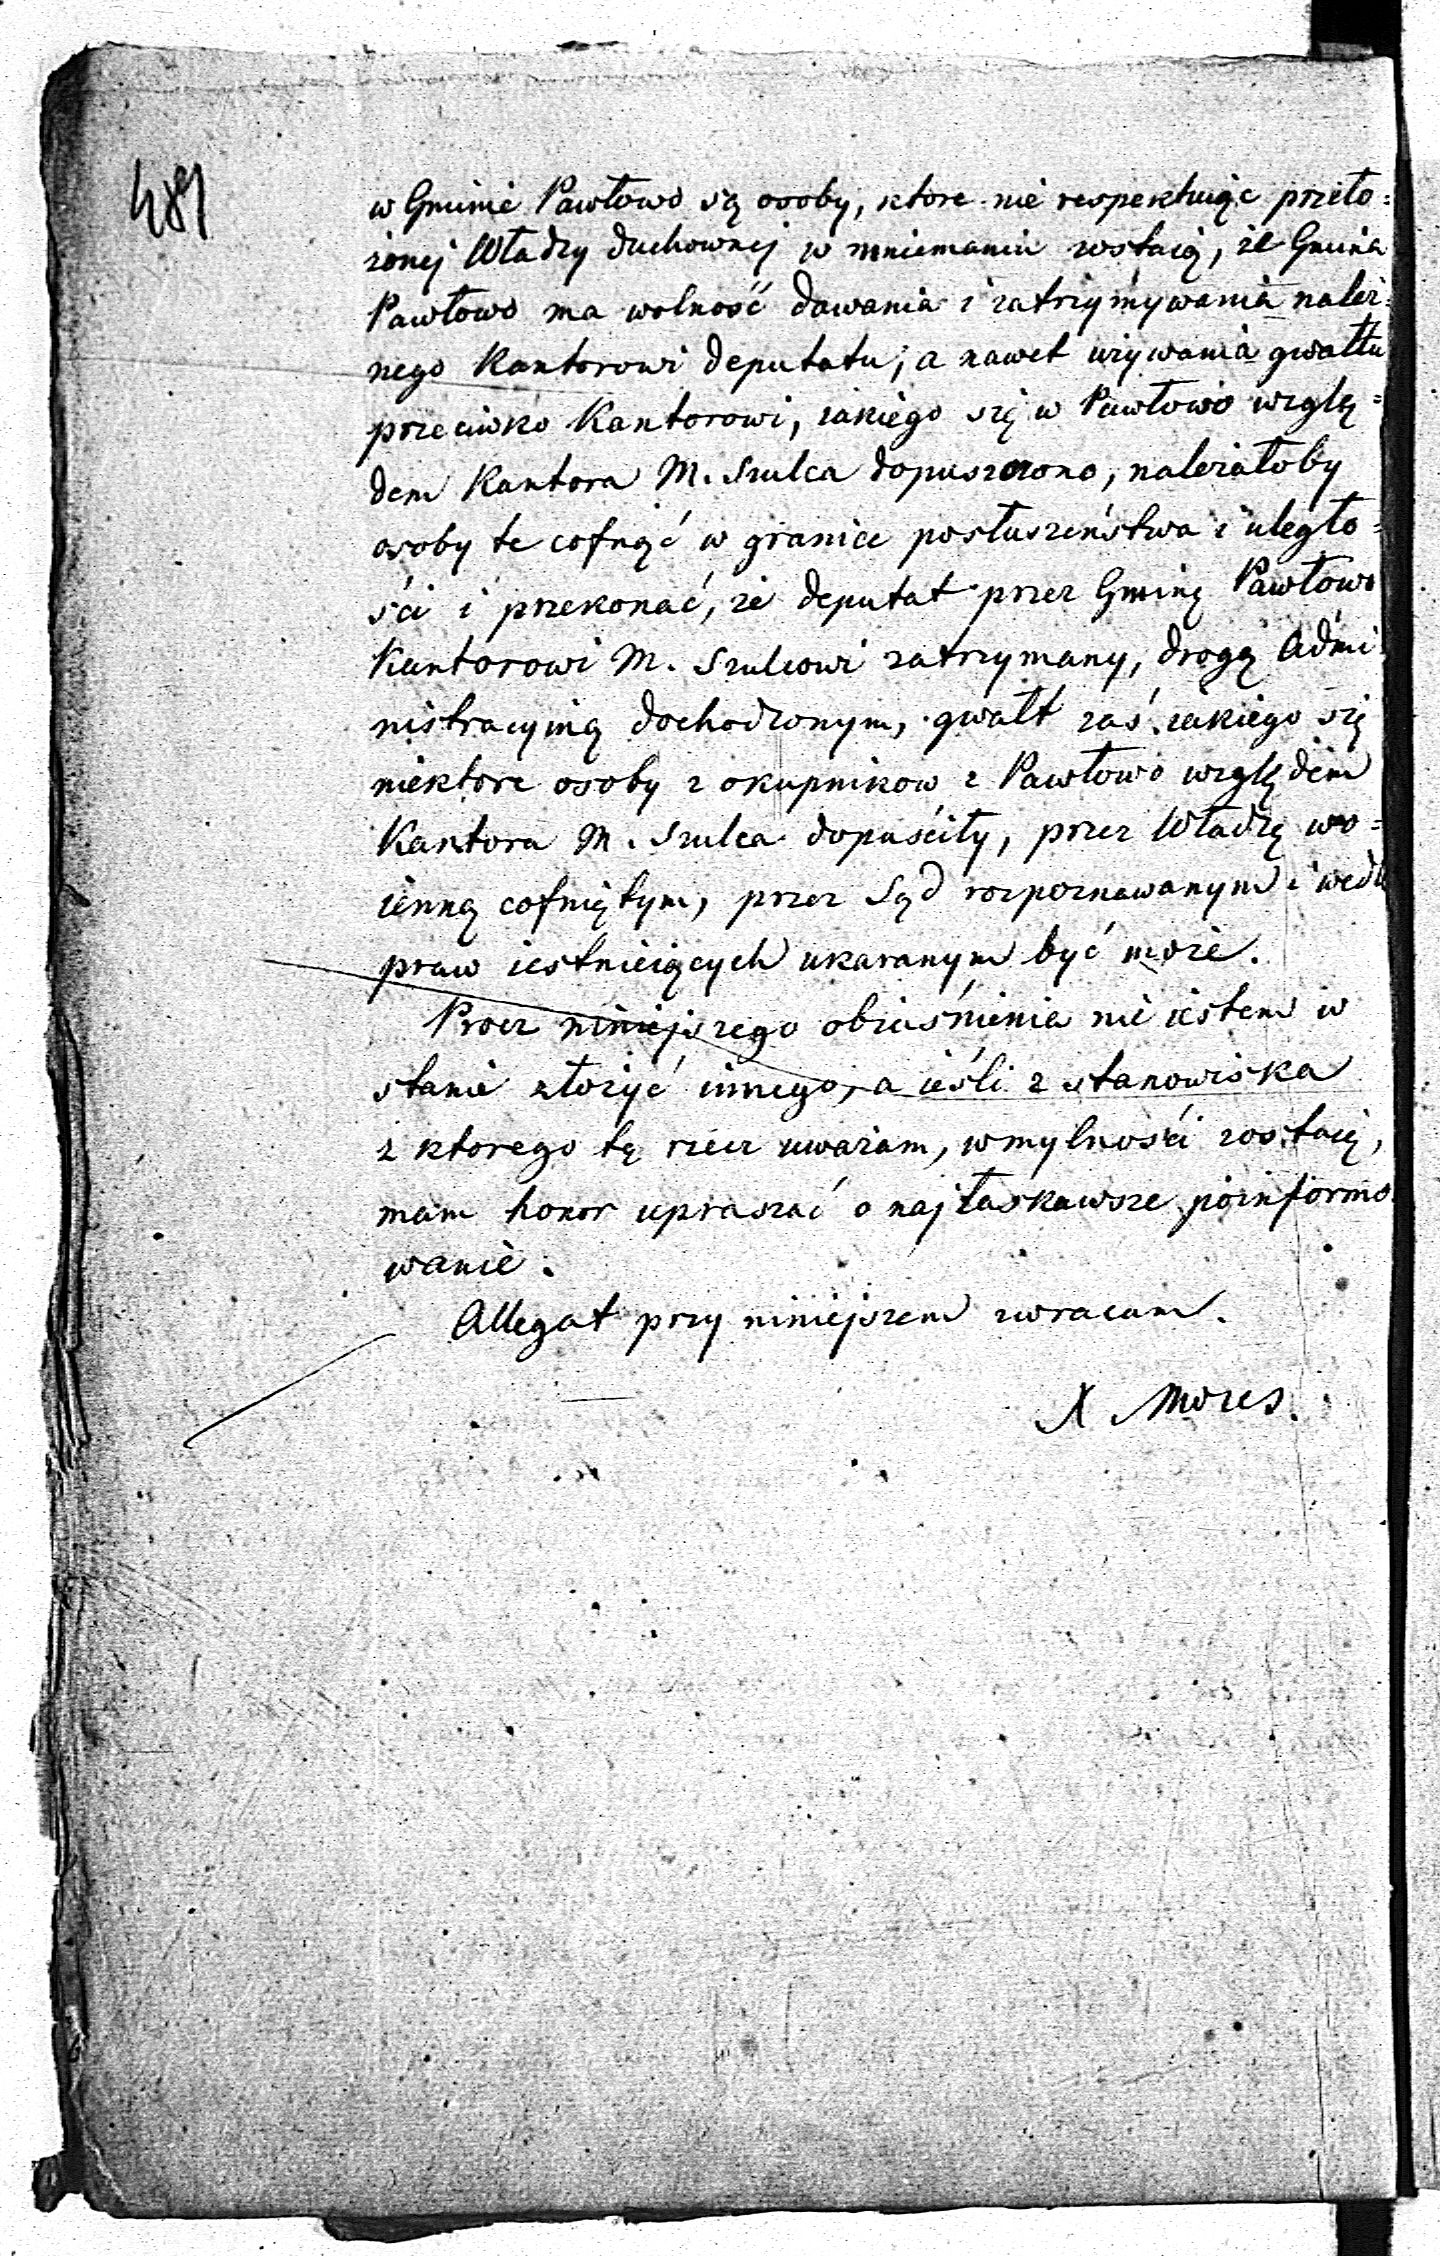 489
w Gminie Pawłowo są osoby, ktore nie respektuiąc przeło=
żonej Władzy duchownej w mniemaniu zostaią, że Gmina
Pawłowo ma wolność dawania i zatrzymywania należ=
nego Kantorowi deputatu; a nawet używania gwałtu
przeciwko Kantorowi, iakiego się w Pawłowo wzglę=
dem Kantora M. Szulca dopuszczono, należałoby
osoby te cofnąć w granice posłuszeństwa i uległo=
ści i przekonać, że deputat przez Gminę Pawłowo
Kantorowi M. Szulcowi zatrzymany, drogą Admi
nistracyiną dochodzonym, gwałt zaś iakiego się
niektore osoby z okupnikow z Pawłowo względem
Kantora M. Szulca dopuściły, przez Władzę wo=
ienną cofniętym, przez Sąd rozpoznawanym i wedle
praw iestnieiących ukaranym być może.
Procz niniejszego obiaśnienia nie iestem w
stanie złożyć innego, a ieśli z stanowiska
z ktorego tę rzecz uważam, w mylności zostaię,
mam honor upraszać o najłaskawsze poinformo
wanie.
Allegat przy niniejszem zwracam.
X Mozes.